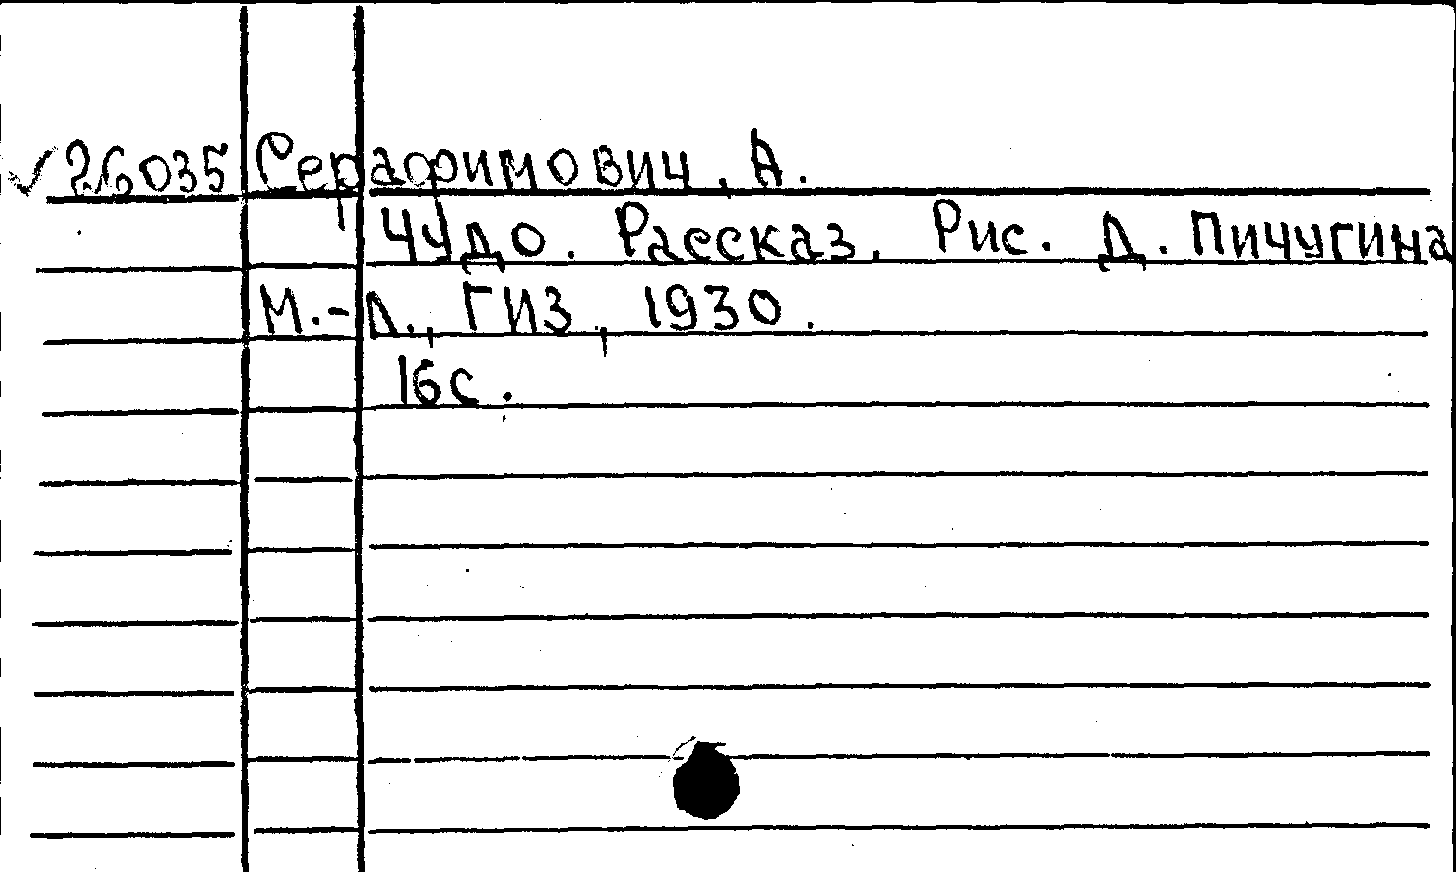 ✓ 26035 Серафимович, А.
Чудо. Рассказ. Рис. Д. Пичугина
М.-Л., ГИЗ, 1930.
16с.